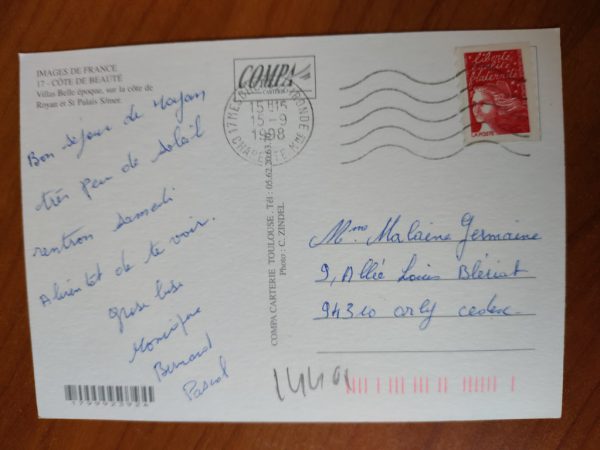 IMAGES DE FRANCE
17 - CÔTE DE BEAUTÉ
Villas Belle époque, sur la côte de
Royan et St Palais S/mer.
Bon séjour de Royan
très peu de soleil
rentron samedi
A bientôt de te voir.
Grose bise
Monique
Bernard
Pascal
1799923924
COMPA
CARTERIE
17 MES
GIRONDE
15H15
15-9
1998
CHARENTE MME
COMPA CARTERIE TOULOUSE . Tél : 05.62.20.63.
Photo : C. ZINDEL
Liberté
égalité
fraternité
LA POSTE
Mme Malaine Germaine
9, Allée Louis Blériot
94310 orly cedex.